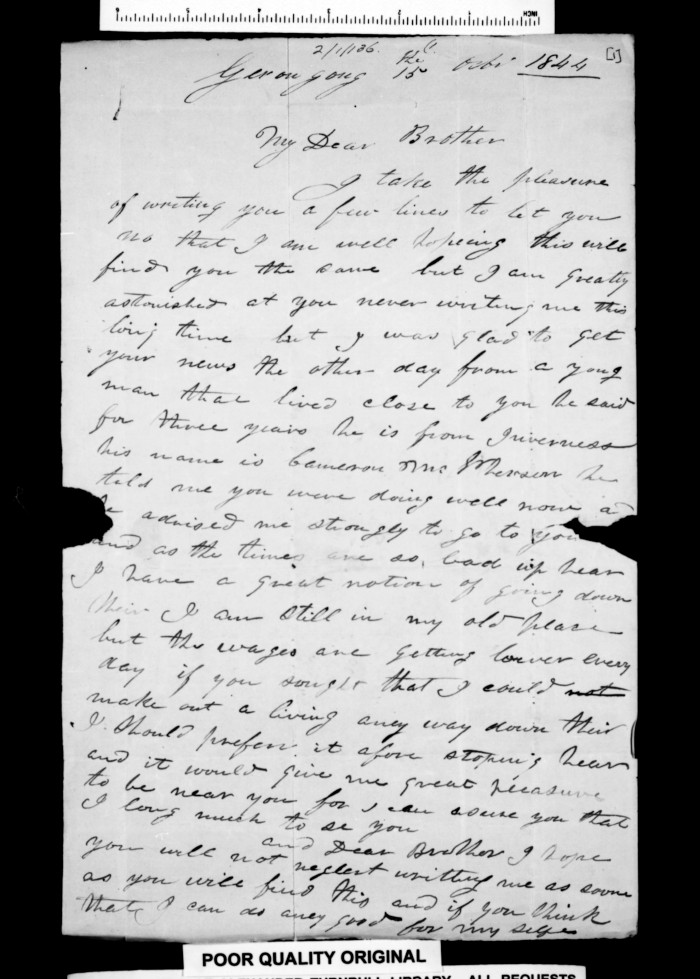 2/1/136.
[1]
Gerongong the 15 Octbr 1844
My Dear Brother
I take the pleasure
of writing you a few lines to let you
no that I am well hopeing this will
find you the same but I am Greatly
astonished at you never writing me this
long time but I was glad to get
your news the other day from a yong
man that lived close to you he said
for three years he is from Inverness
his name is Cameron he
told me you were doing well now
he advised me strongly to go to you
and as the times are so bad up hear
I have a great notion of going down
their I am still in my old place
but the wages are getting lower every
day if you sought that I could not
make out a living aney way down their
I should prefere it afore stoping hear
and it would give me great pleasure
to be near you for I can asure you that
I long much to se you
and Dear Brother I hope
you will not neglect writting me as soon
as you will find this and if you think
that I can do aney good for my selfe
POOR QUALITY ORIGINAL
ALEXANDER TURNBULL LIBRARY ALL REQUESTS